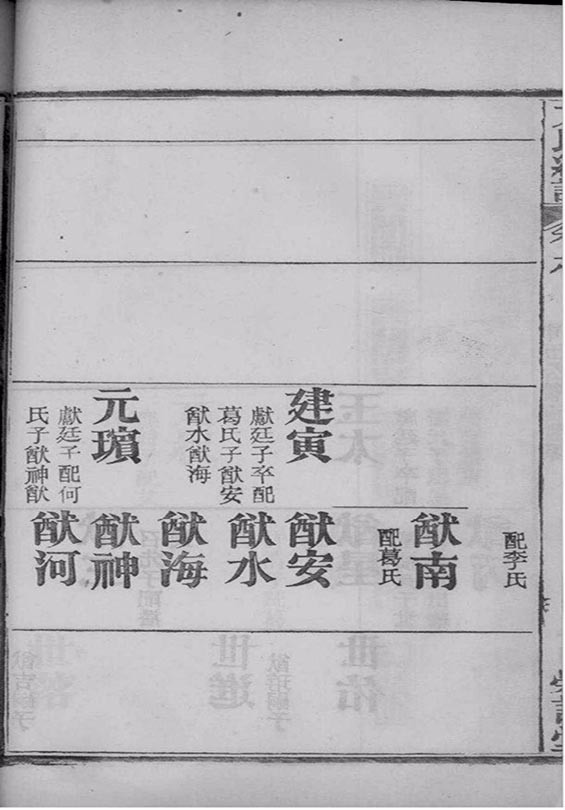 配李氏
猷南
配葛氏
建寅
獻廷子卒配
葛氏子猷安
猷水猷海
猷安
猷水
猷海
元璸
獻廷子配何
氏子猷神猷
猷神
猷河